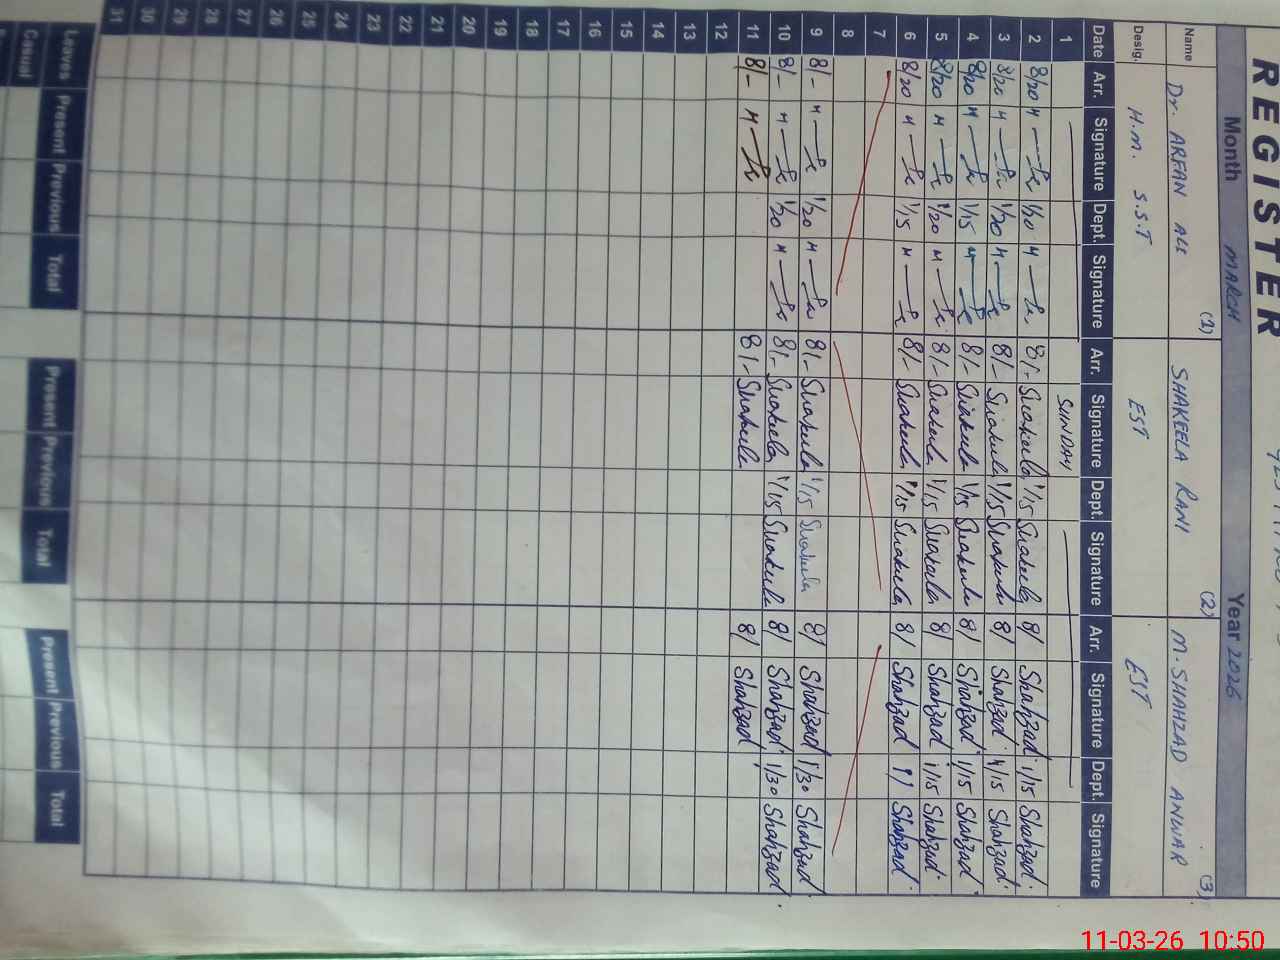 REGISTER
Month MARCH Year 2026
Name Dr. ARFAN ALI (1) SHAKEELA RANI (2) M. SHAHZAD ANWAR (3)
Desig. H.M. S.S.T EST EST
Date Arr. Signature Dept. Signature Arr. Signature Dept. Signature Arr. Signature Dept. Signature
1 SUNDAY
2 8/20 1/20 8/- Shakeela 1/15 Shakeela 8/ Shahzad 1/15 Shahzad
3 8/20 1/20 8/- Shakeela 1/15 Shakeela 8/ Shahzad 1/15 Shahzad
4 8/20 1/15 8/- Shakeela 1/15 Shakeela 8/ Shahzad 1/15 Shahzad
5 8/20 1/20 8/- Shakeela 1/15 Shakeela 8/ Shahzad 1/15 Shahzad
6 8/20 1/15 8/- Shakeela 1/15 Shakeela 8/ Shahzad 1/ Shahzad
7
8
9 8/- 1/20 8/- Shakeela 1/15 Shakeela 8/ Shahzad 1/30 Shahzad
10 8/- 1/20 8/- Shakeela 1/15 Shakeela 8/ Shahzad 1/30 Shahzad
11 8/- 8/- Shakeela 8/ Shahzad
12
13
14
15
16
17
18
19
20
21
22
23
24
25
26
27
28
29
30
31
Leaves Present Previous Total Present Previous Total Present Previous Total
Casual
11-03-26 10:50